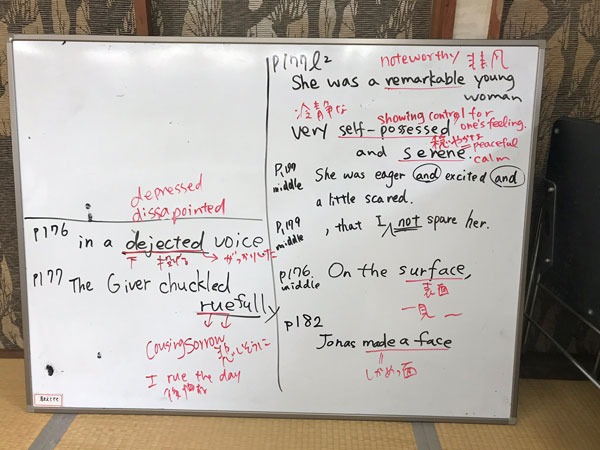 depressed
dissapointed
p176 in a dejected voice
下 投げる → がっかりした
p177 The Giver chuckled
ruefully
cousing sorrow
悲しそうに
I rue the day
p177 l2
noteworthy 非凡
She was a remarkable young
woman
冷静な
showing control for
one's feeling.
very self-possessed
穏やかな = peaceful
calm
and serene.
p,179 middle She was eager and excited and
a little scared.
p,179 middle , that I not spare her.
p,176. middle On the surface,
表面
一見
p182
Jonas made a face
しかめっ面